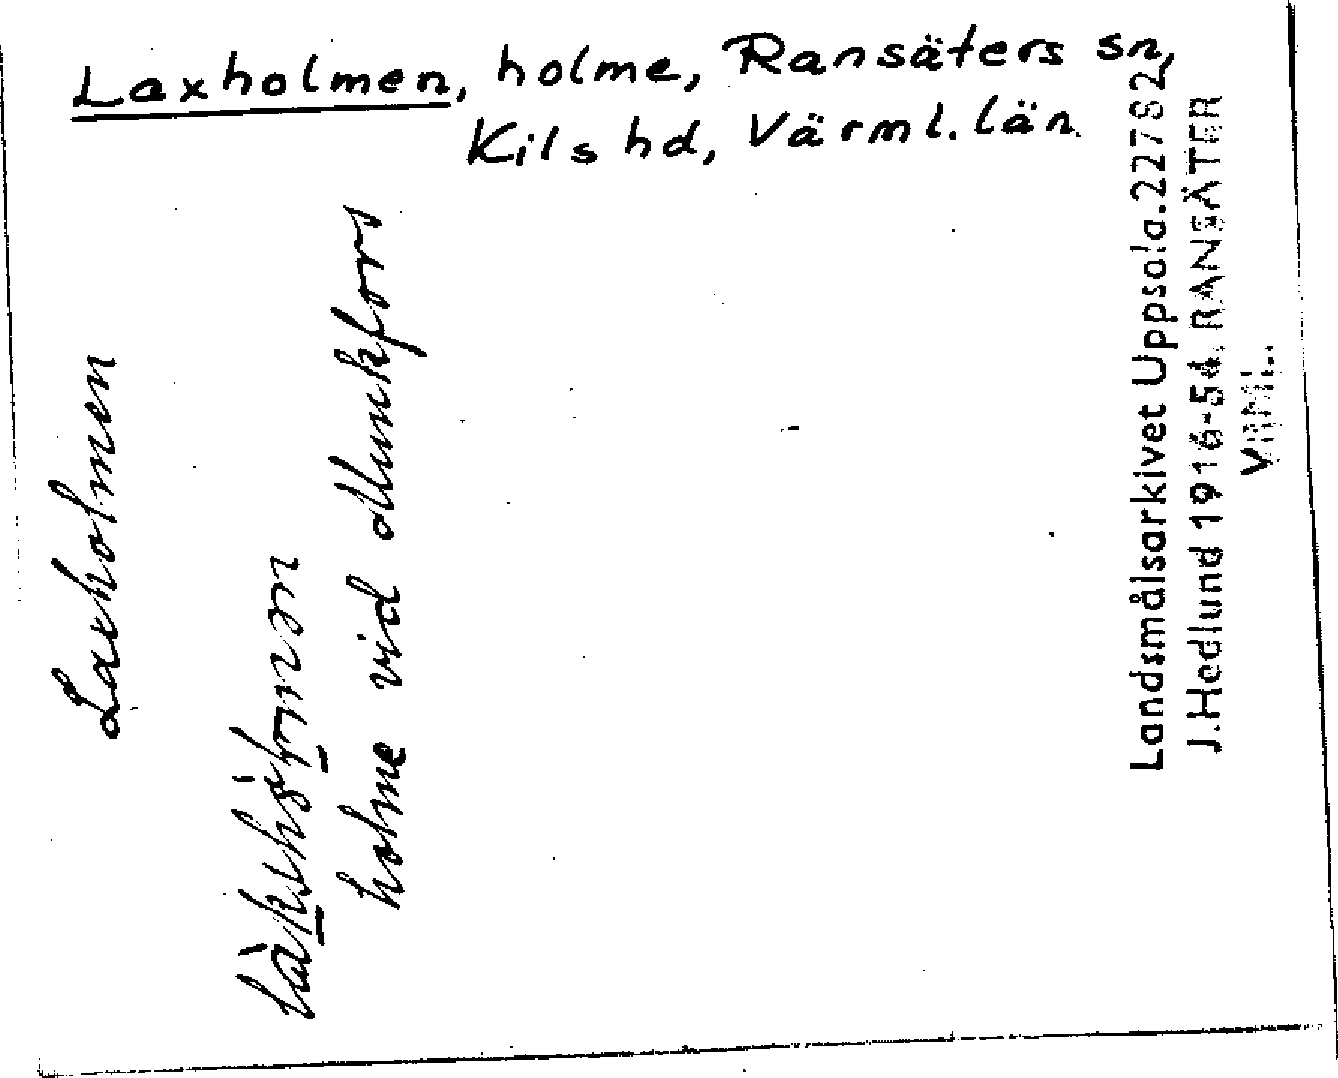 Laxholmen, holme, Ransäters sn,
Kils hd, Värml. län.
Laxholmen
holme vid Munkfors
Landsmålsarkivet Uppsala. 22782
J. Hedlund 1916-54. RANSÄTER
VRML.